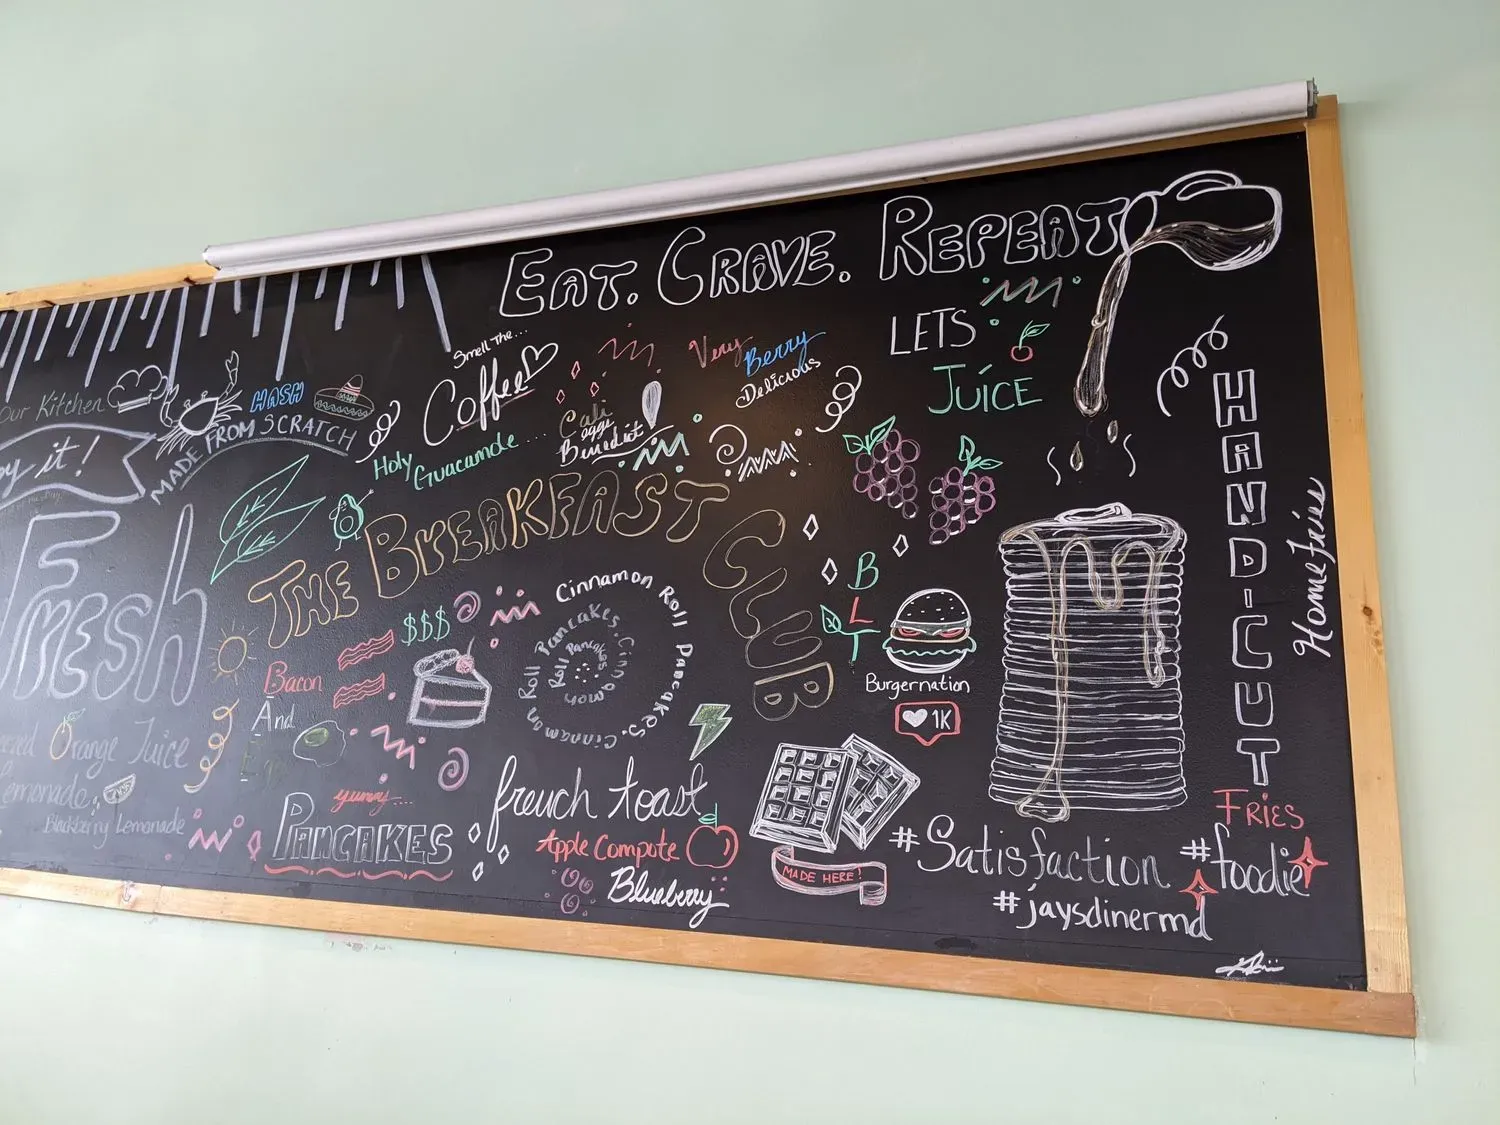 EAT. CRAVE. REPEAT
Our Kitchen
y it!
HASH
MADE FROM SCRATCH
Smell The...
Coffee
Holy
Guacamole....
Cali
Eggs
Benedict
Very
Berry
Delicious
LETS
JUICE
HANDICUT
FRIES
Home Fries
Fresh
THE BREAKFAST
CLUB
$$$
Bacon
And
Cinnamon Roll Pancakes. Cinnamon Roll Pancakes. Cinnamon Roll Pancakes
BLT
Burgernation
1K
Orange Juice
Lemonade
Blackberry Lemonade
yummy....
PANCAKES
french toast
Apple Compote
Blueberry
MADE HERE!
#Satisfaction
#foodie
#jaysdinermd